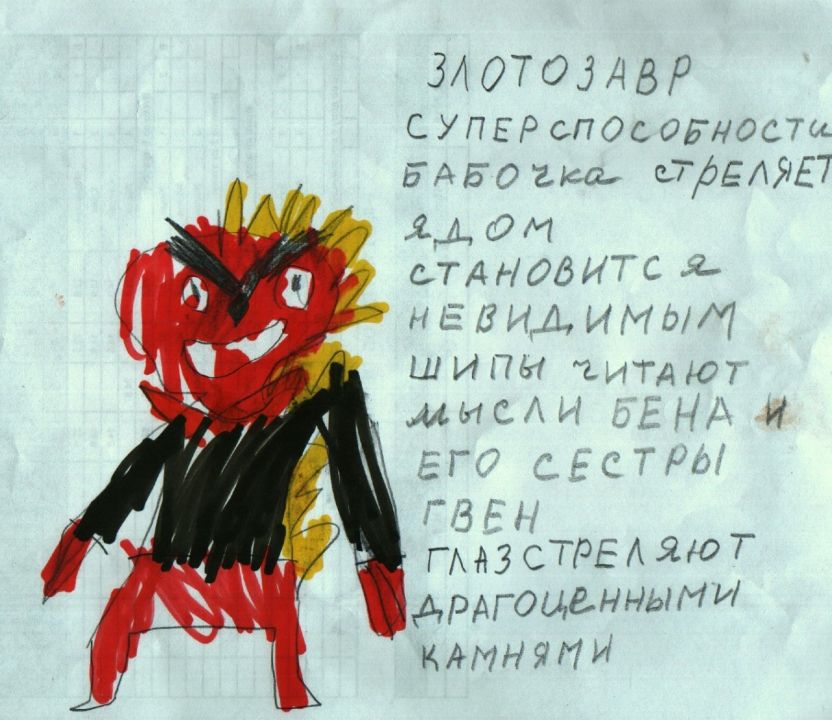 ЗЛОТОЗАВР
СУПЕРСПОСОБНОСТИ
БАБОЧКА СТРЕЛЯЕТ
ЯДОМ
СТАНОВИТСЯ
НЕВИДИМЫМ
ШИПЫ ЧИТАЮТ
МЫСЛИ БЕНА И
ЕГО СЕСТРЫ
ГВЕН
ГЛАЗ СТРЕЛЯЮТ
ДРАГОЦЕННЫМИ
КАМНЯМИ